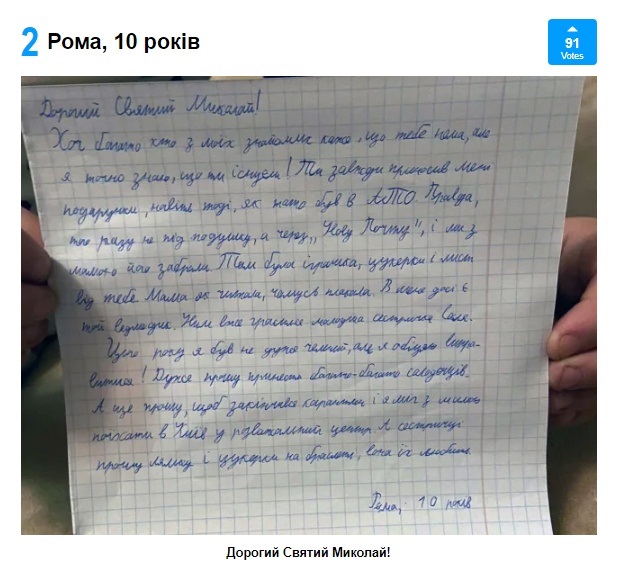 2 Рома, 10 років
91
Votes
Дорогий Святий Миколай!
Хоч багато хто з моїх знайомих каже, що тебе нема, але
я точно знаю, що ти існуєш! Ти завжди приносив мені
подарунки, навіть тоді, як тато був в АТО. Правда,
того разу не під подушку, а через „Нову Почту", і ми з
мамою його забрали. Там була іграшка, цукерки і лист
від тебе. Мама як читала, чомусь плакала. В мене досі є
той ведмедик. Ним вже грається молодша сестричка
Цього року я був не дуже чемний, але я обіцяю випра-
витися! Дуже прошу принести багато-багато
А ще прошу, щоб закінчився карантин і я міг з мамою
поїхати в Київ у розважальний центр. А сестричці
прошу ляльку і цукерки на браслеті, вона їх любить.
Рома, 10 років
Дорогий Святий Миколай!